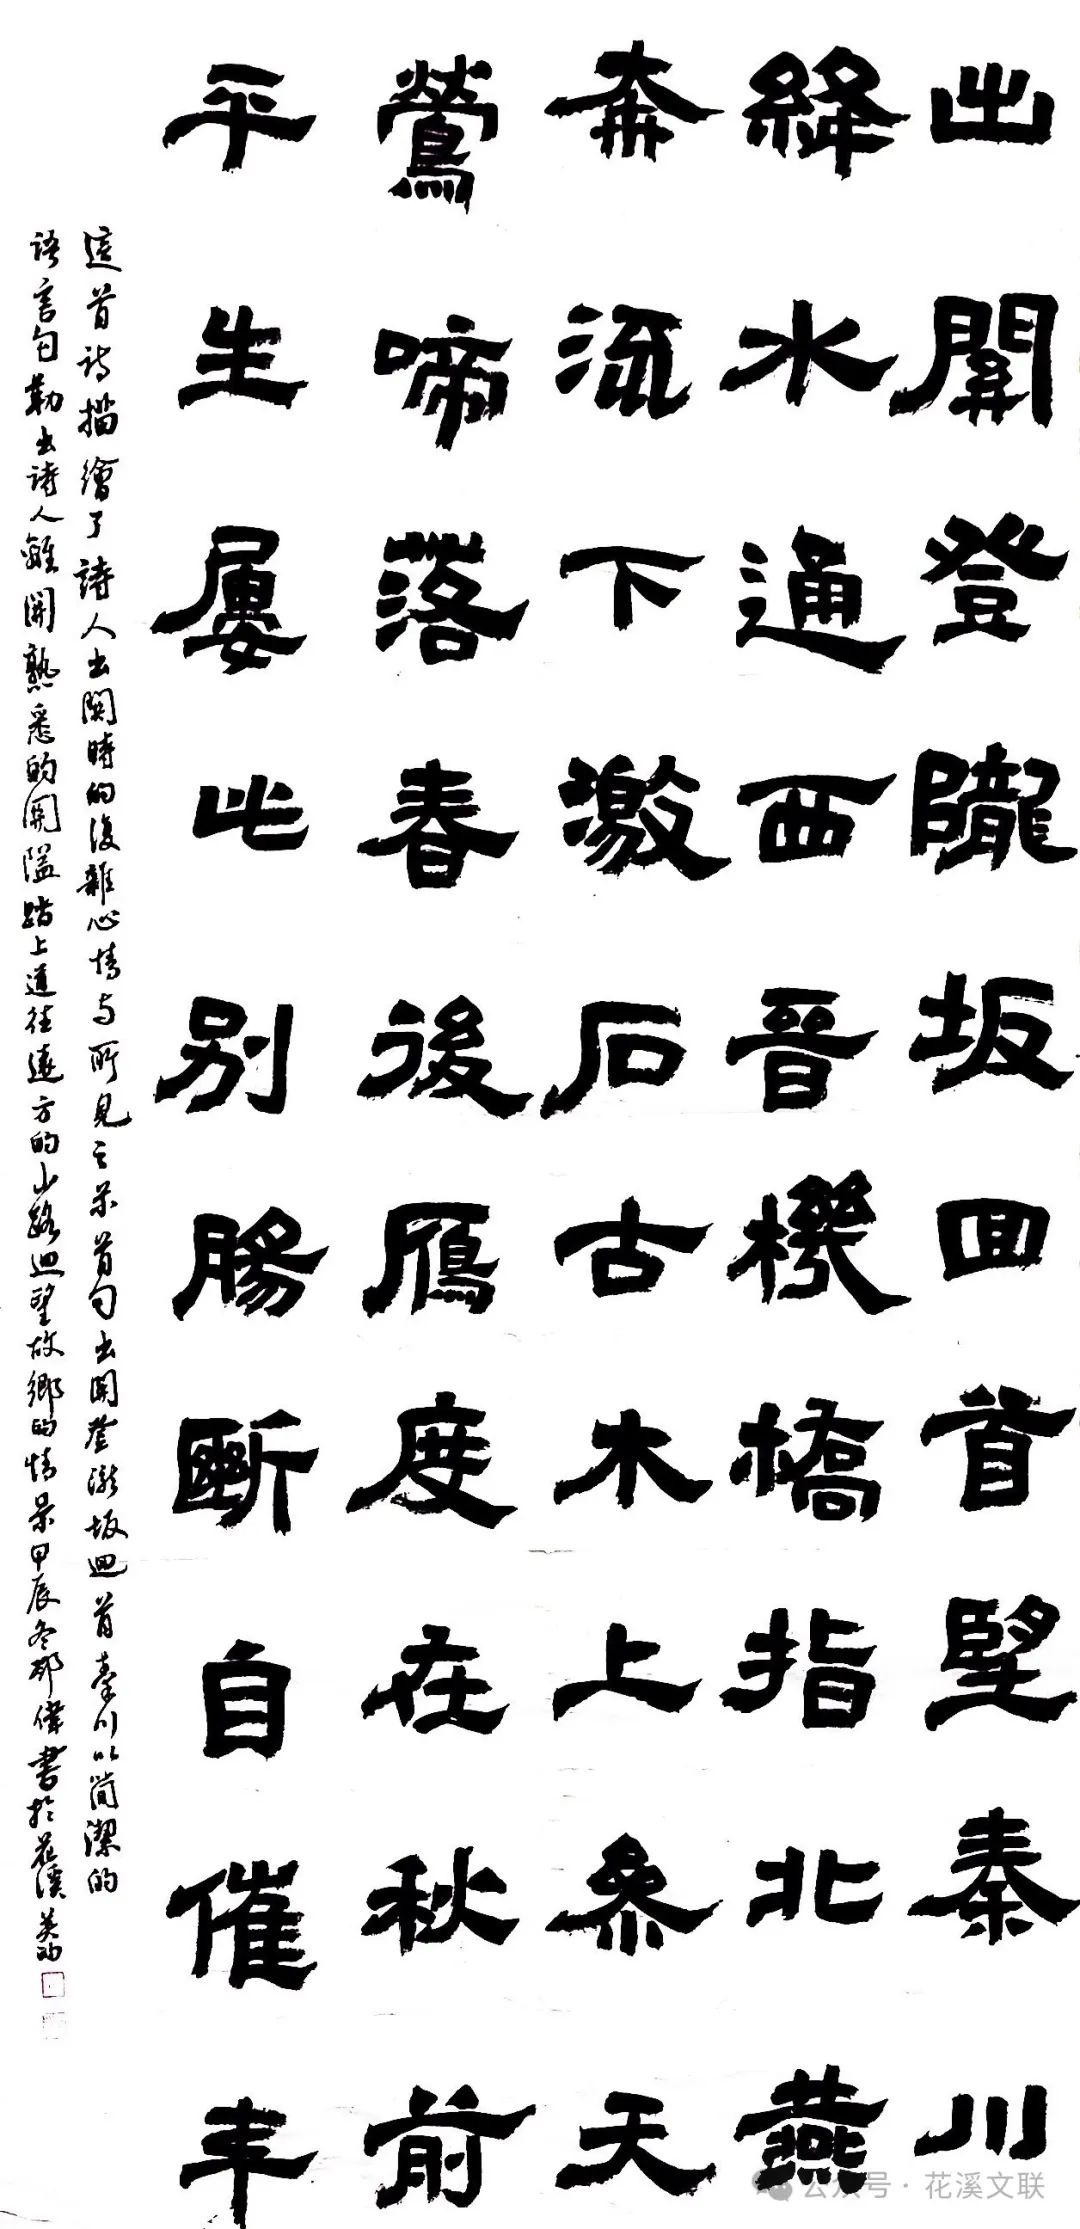 出關登隴坂回首望秦川
絳水通西晉機橋指北燕
奔流下激石古木上參天
鶯啼落春後雁度在秋前
平生屢此別腸斷自催年
這首詩描繪了詩人出関時的復雜心情与所見之景首句出關登隴坂迴首秦川以簡潔的
語言勾勒出詩人離開熟悉的關隘踏上通往遠方的山路迴望故鄉的情景甲辰冬鄧偉書於花溪
公众号·花溪文联